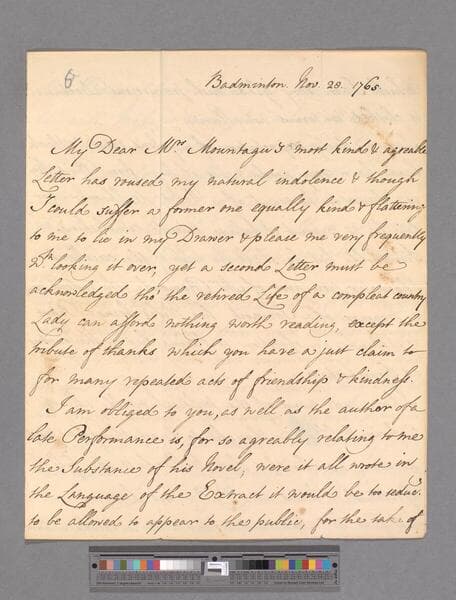 6
Badminton. Nov. 28. 1765.
My Dear Mrs Mountagu's most kind & agreable
Letter has roused my natural indolence & though
I could suffer a former one equally kind & flattering
to me to lie in my Drawer & please me very frequently
looking it over, yet a second Letter must be
acknowledged tho' the retired Life of a compleat country
Lady can afford nothing worth reading, except the
tribute of thanks which you have a just claim to
for many repeated acts of friendship & kindness.
I am obliged to you, as well as the author of a
late Performance is, for so agreably relating to me
the Substance of his Novel, were it all wrote in
the Language of the Extract it would be too
to be allowed to appear to the public, for the sake of